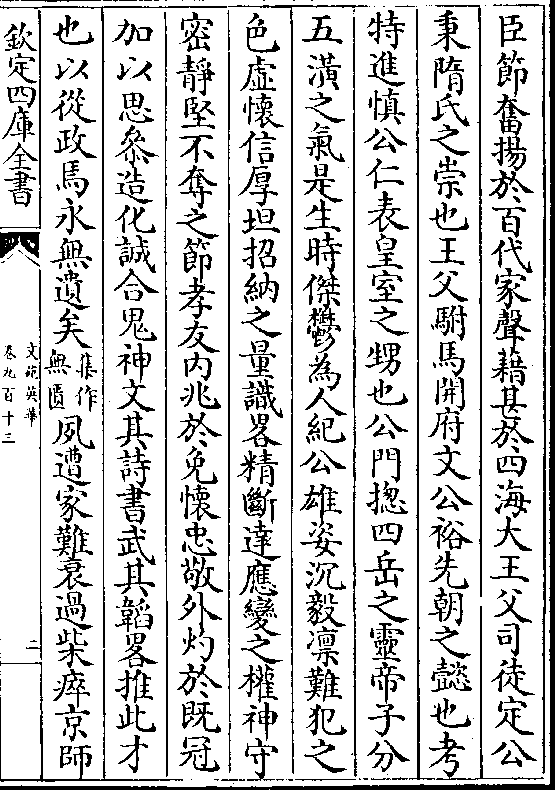 臣節奮揚於百代家聲藉甚於四海大王父司徒定公
秉隋氏之崇也王父駙馬開府文公裕先朝之懿也考
特進慎公仁表皇室之甥也公門揔四岳之靈帝子分
五潢之氣是生時傑鬱為人紀公雄姿沉毅凛難犯之
色虛懷信厚坦招納之量識畧精斷達應變之權神守
密靜堅不奪之節孝友内兆於免懷忠敬外灼於既冠
加以思叅造化誠合鬼神文其詩書武其韜畧推此才
也以從政焉永無遺矣集作無匱夙遭家難哀過柴瘠京師
欽定四庫全書
文苑英華
卷九百十三
二